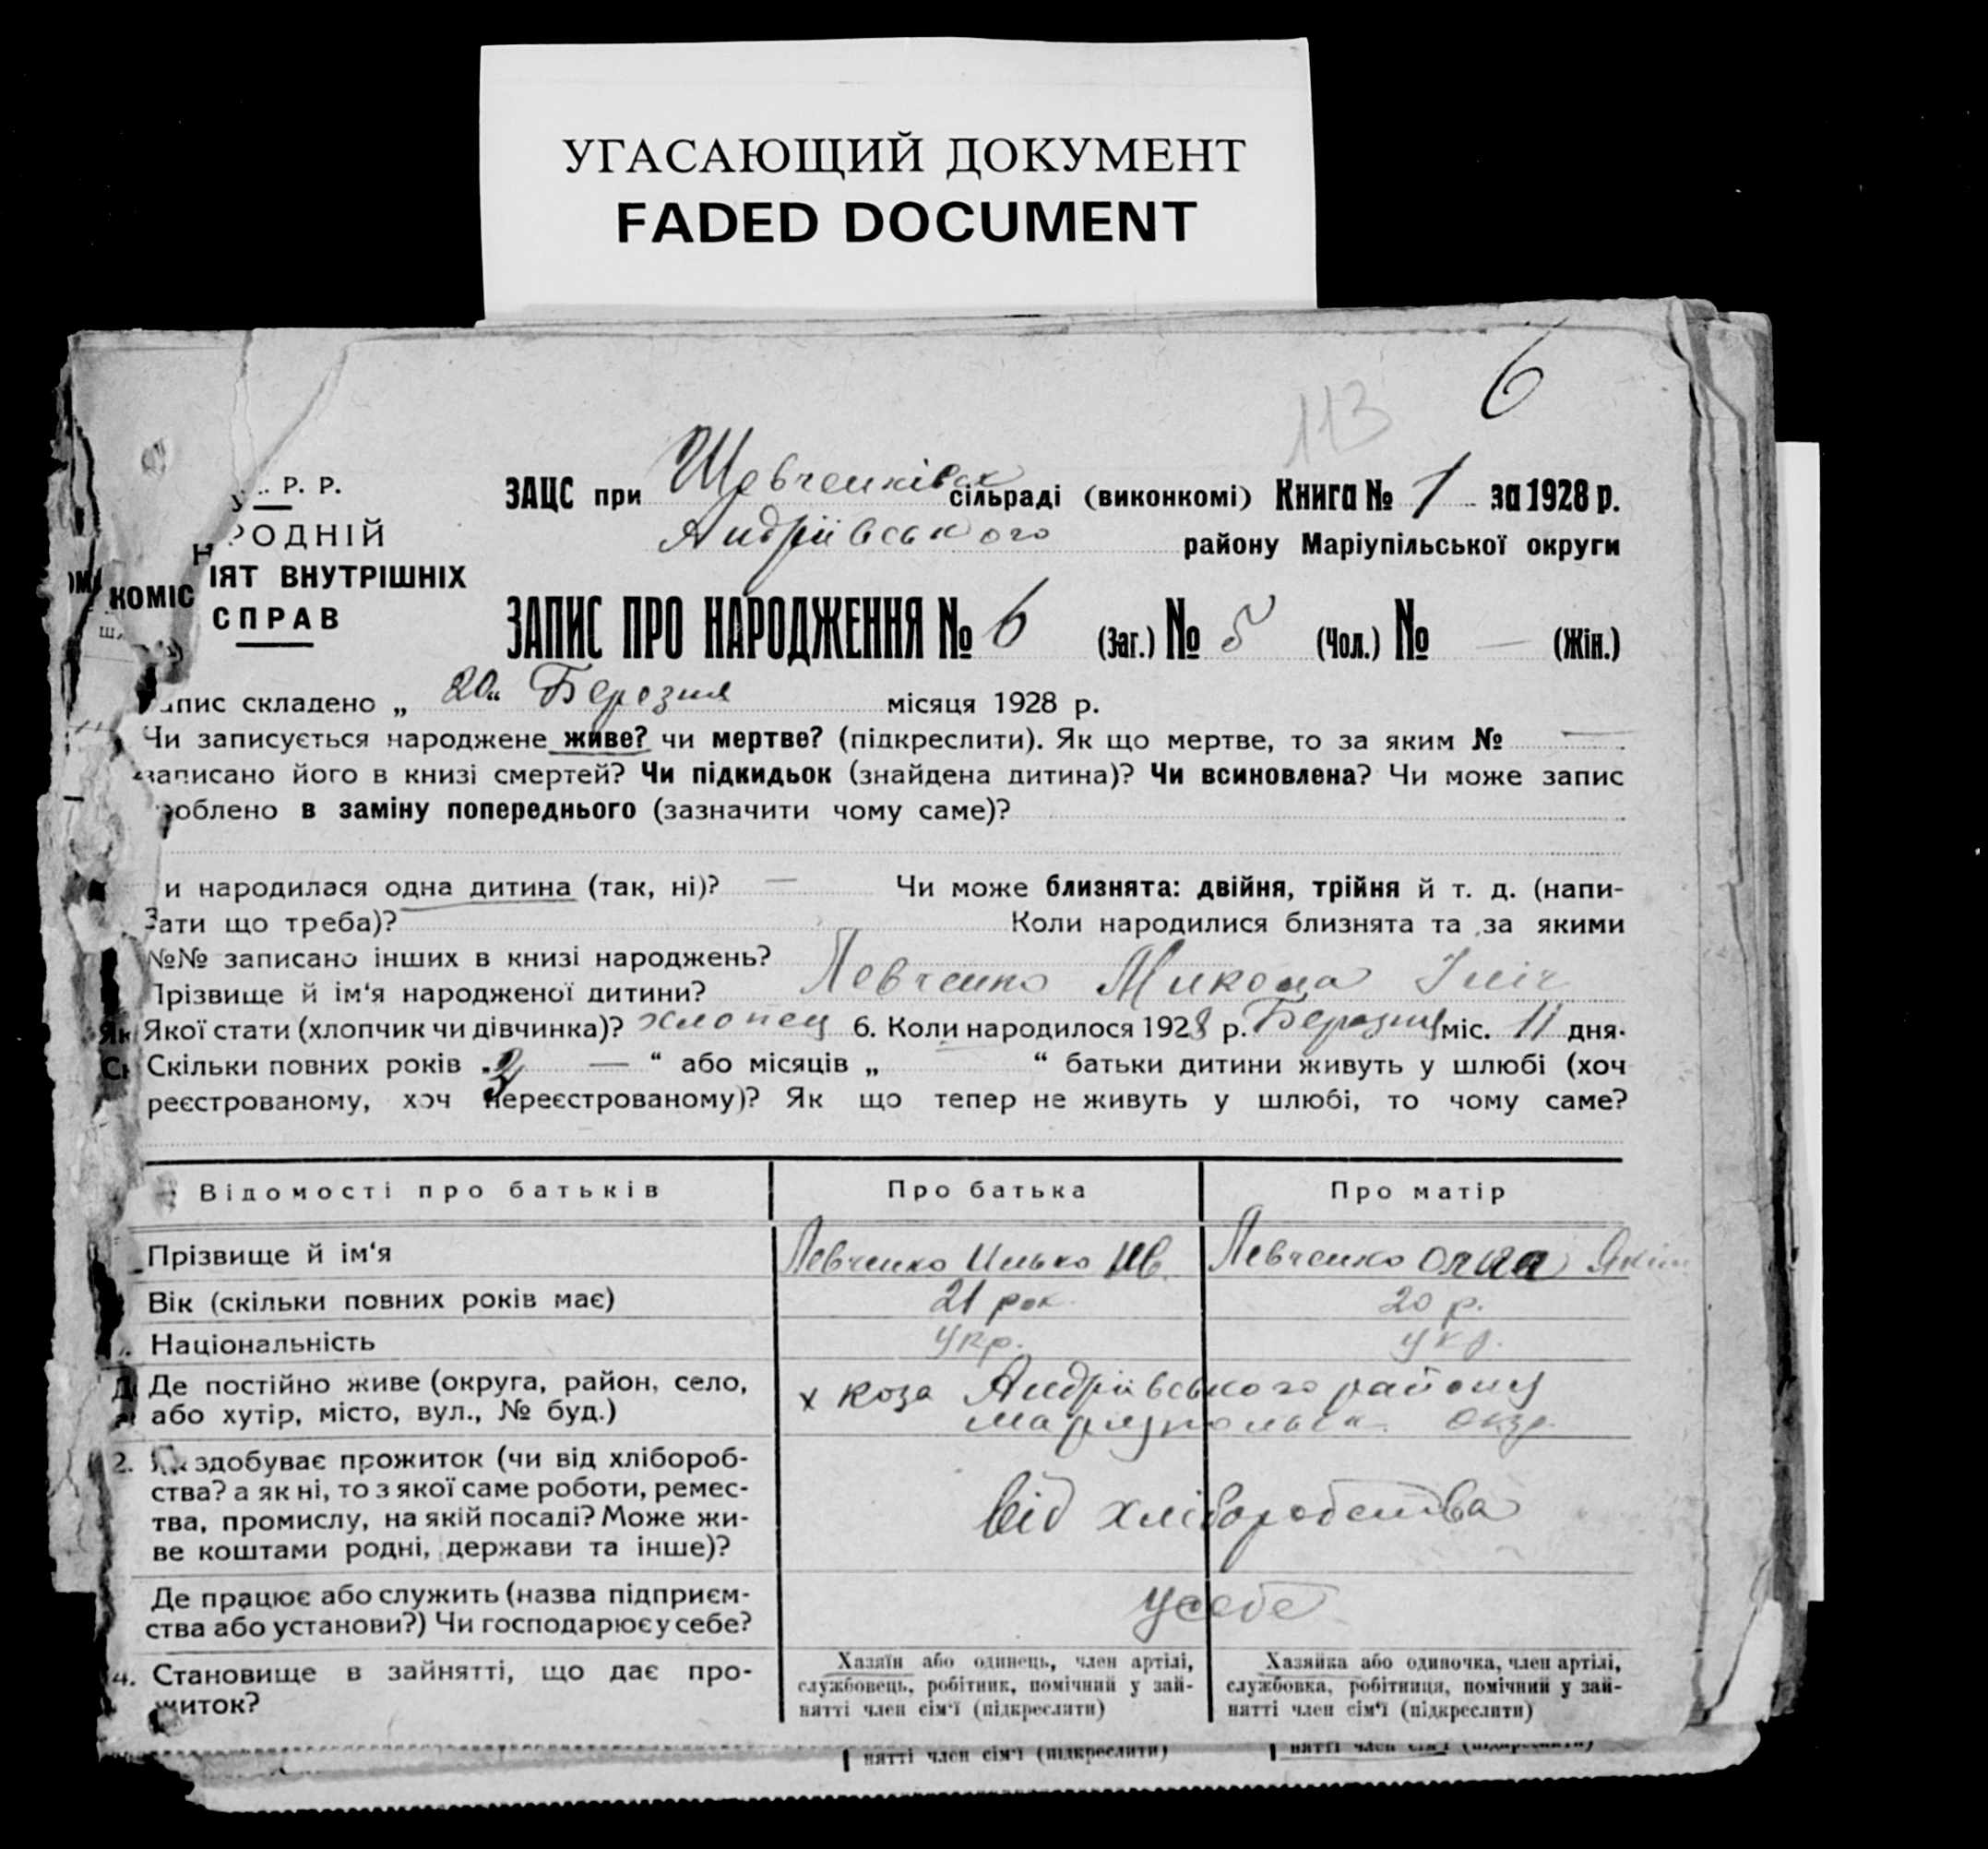 УГАСАЮЩИЙ ДОКУМЕНТ
FADED DOCUMENT
6
113
У.. Р. Р.
НАРОДНІЙ
КОМІС ІЯТ ВНУТРІШНІХ
СПРАВ
ЗАЦС при Шевченківск сільраді (виконкомі) Книга № 1 за 1928 р.
Андріівського району Маріупільської округи
ЗАПИС ПРО НАРОДЖЕННЯ № 6 (Заг.) № 5 (Чол.) № — (Жін.)
апис складено „ 20 “ Березня місяця 1928 р.
Чи записується народжене живе? чи мертве? (підкреслити). Як що мертве, то за яким № —
записано його в книзі смертей? Чи підкидьок (знайдена дитина)? Чи всиновлена? Чи може запис
роблено в заміну попереднього (зазначити чому саме)?
и народилася одна дитина (так, ні)? — Чи може близнята: двійня, трійня й т. д. (напи-
сати що треба)? Коли народилися близнята та за якими
№№ записано інших в книзі народжень?
Прізвище й ім‘я народженої дитини? Левченко Микола Іліч
Якої стати (хлопчик чи дівчинка)? хлопец 6. Коли народилося 1928 р. Березня міс. 11 дня.
Скільки повних років „ — “ або місяців „ “ батьки дитини живуть у шлюбі (хоч
реєстрованому, хоч нереєстрованому)? Як що тепер не живуть у шлюбі, то чому саме?
Відомості про батьків Про батька Про матір
Прізвище й ім‘я Левченко Илько Ив. Левченко Олга Яким
Вік (скільки повних років має) 21 рок. 20 р.
Національність Укр. Укр.
Де постійно живе (округа, район, село, х Коза Андріівського району
або хутір, місто, вул., № буд.) Маріупольск. окр.
2. Як здобуває прожиток (чи від хлібороб-
ства? а як ні, то з якої саме роботи, ремес-
тва, промислу, на якій посаді? Може жи- Від хліборобства
ве коштами родні, держави та інше)?
Де працює або служить (назва підприєм- усебе
ства або установи?) Чи господарює у себе?
4. Становище в зайнятті, що дає про-
житок?
Хазяїн або одинець, член артілі,
службовець, робітник, помічний у зай-
нятті член сім‘ї (підкреслити)
Хазяйка або одиночка, член артілі,
службовка, робітниця, помічний у зай-
нятті член сім‘ї (підкреслити)
нятті член сім‘ї (підкреслити)
нятті член сім‘ї (підкреслити)